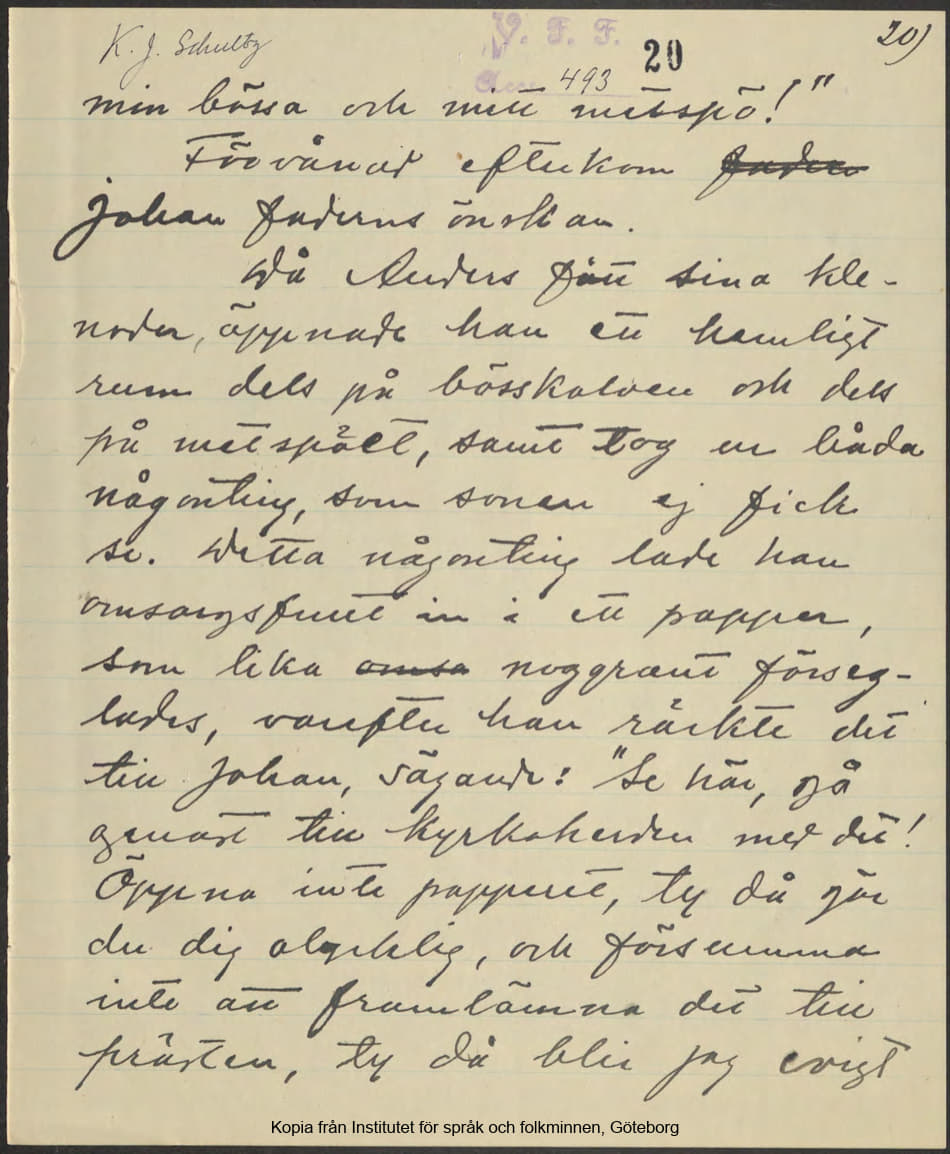 K. J. Schultz
V. F. F.
20
20)
493
min bössa och mitt metspö!"
Förvånad efterkom fadern
Johan faderns önskan.
Då Anders fått sina kle-
noder, öppnade han ett hemligt
rum dels på bösskolven och dels
på metspöet, samt tog ur båda
någonting, som sonen ej fick
se. Detta någonting lade han
omsorgsfullt in i ett papper,
som lika omso noggrant förseg-
lades, varefter han räckte det
till Johan, sägande: "Se här, gå
genast till kyrkoherden med det!
Öppna inte papperet, ty då gör
du dig olycklig, och försumma
inte att framlämna det till
prästen, ty då blir jag evigt
Kopia från Institutet för språk och folkminnen, Göteborg